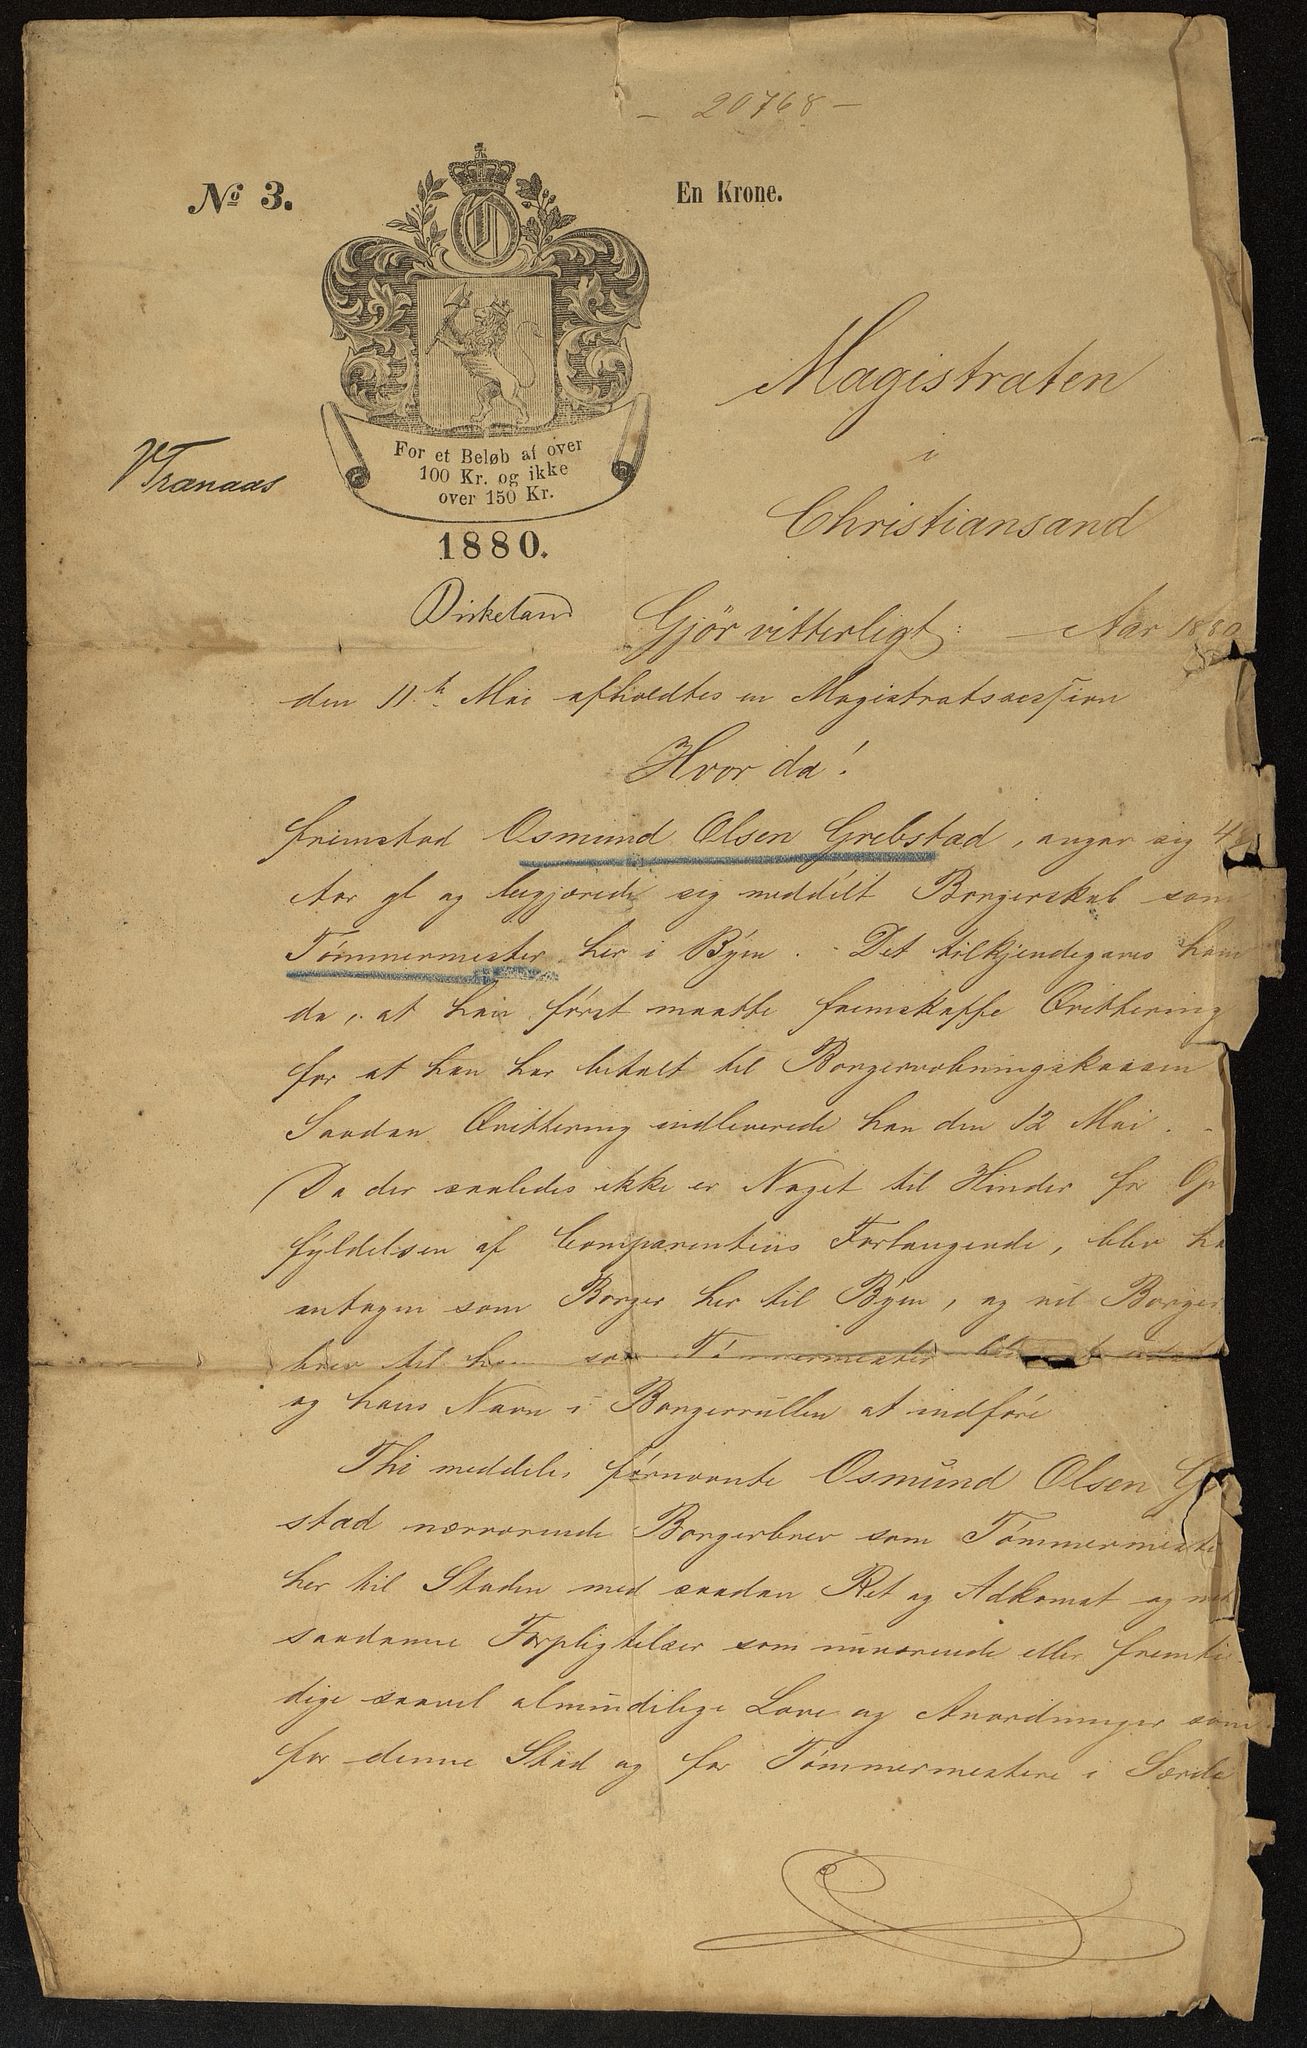 - 20768 -
No 3.
En Krone.
For et Beløb af over
100 Kr. og ikke
over 150 Kr.
1880.
VTranaas
Magistraten
i
Christiansand
Gjør vitterligt: Aar 1880
den 11te Mai afholdtes en Magistratssession
Hvor da!
fremstod Osmund Olsen Grebstad, angav sig 4
Aar gl og begjærede sig meddelt Borgerskab som
Tømmermester her i Byen. Det tilkjendegaves ham
da, at han først maatte fremskaffe Qvittering
for at han har betalt til Borgervæbningskassen
Saadan Qvittering indleverede han den 12 Mai. -
Da der saaledes ikke er Noget til Hinder for Op
fyldelsen af Comparentens Forlangende, blev ha
antagen som Borger her til Byen, og vil Borger
brev til ham som Tømmermester blive at
og hans Navn i Borgerrullen at indføre
Thi meddeles førnævnte Osmund Olsen G
stad nærværende Borgerbrev som Tømmermeste
her til Staden med saadan Ret og Adkomst og med
saadanne Forpligtelser som nuværende eller fremti
dige saavel almindelige Love og Anordninger som
for denne Stad og for Tømmermestere i Særde